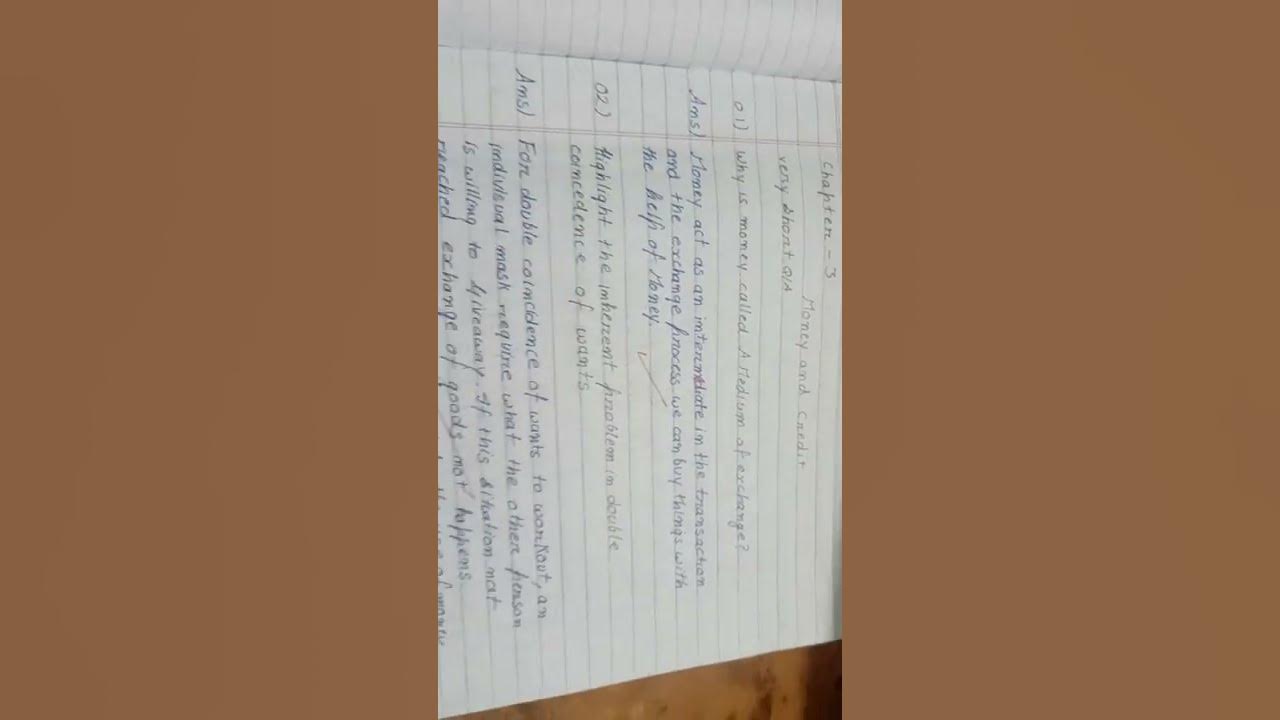 Chapter - 3
Money and Credit
very short Q/A
01) Why is money called A Medium of exchange?
Ans) Money act as an intermidiate in the transaction
and the exchange process we can buy things with
the help of Money.
02) Highlight the inherent problem in double
coincedence of wants
Ans) For double coincidence of wants to workout, an
indivisual mask require what the other person
is willing to giveaway. If this situation not
reached exchange of goods not happens
the use of money